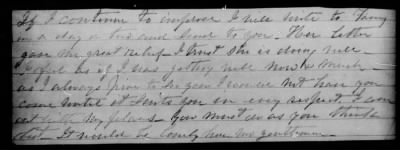 If I continue to improve I will write to Fanny
in a day or two and send to you. Her letter
gave me great relief I trust she is doing well.
I feel as if I was getting well now & much
as I always prize to be seen I would not have you
come until it suits you in every respect. I can
with my plans. You must do as you think
best. It would be lonely here